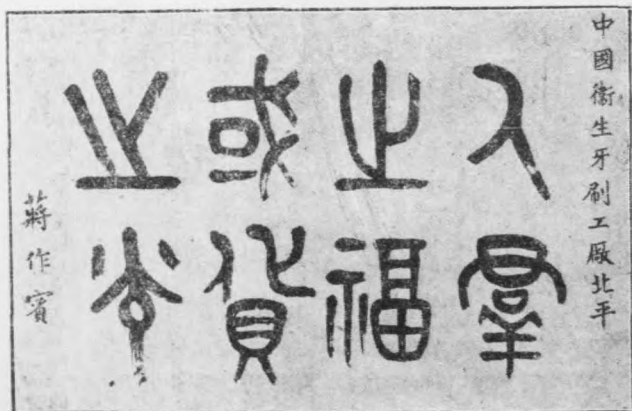 中國衛生牙刷工廠北平
人羣
之福
或貨
之光
蔣作賓